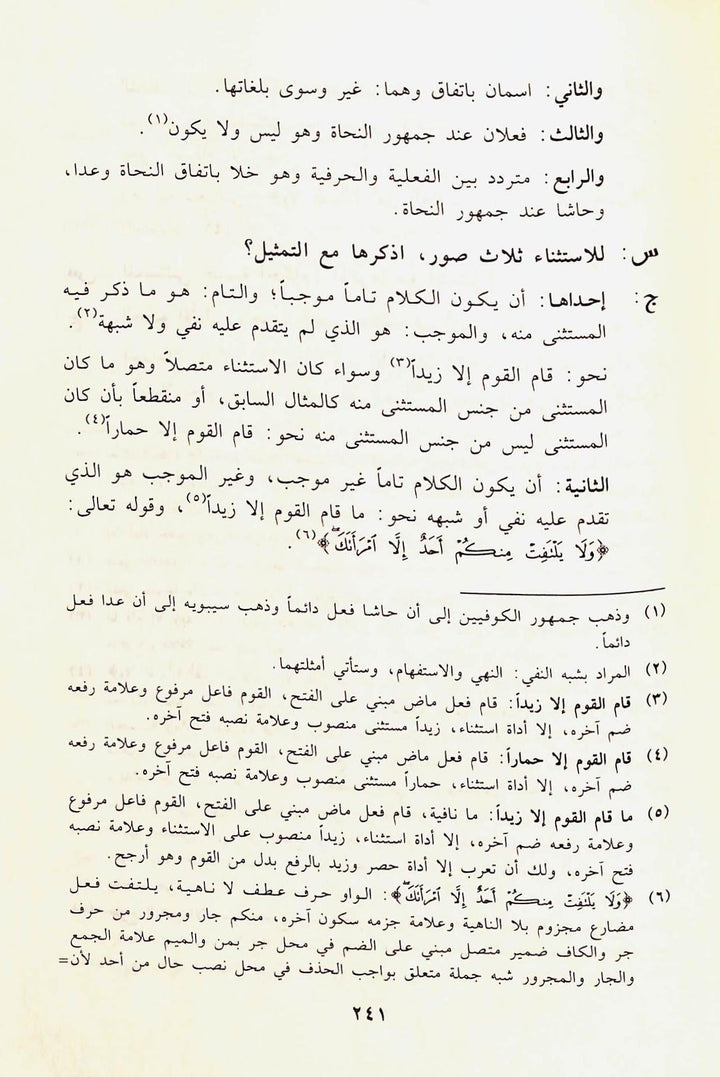 والثاني: اسمان باتفاق وهما: غير وسوى بلغاتها.
والثالث: فعلان عند جمهور النحاة وهو ليس ولا يكون(١).
والرابع: متردد بين الفعلية والحرفية وهو خلا باتفاق النحاة وعدا،
وحاشا عند جمهور النحاة.
س: للاستثناء ثلاث صور، اذكرها مع التمثيل؟
ج: إحداها: أن يكون الكلام تاماً موجباً؛ والتام: هو ما ذكر فيه
المستثنى منه، والموجب: هو الذي لم يتقدم عليه نفي ولا شبهة(٢).
نحو: قام القوم إلا زيداً(٣) وسواء كان الاستثناء متصلاً وهو ما كان
المستثنى من جنس المستثنى منه كالمثال السابق، أو منقطعاً بأن كان
المستثنى ليس من جنس المستثنى منه نحو: قام القوم إلا حماراً(٤).
الثانية: أن يكون الكلام تاماً غير موجب، وغير الموجب هو الذي
تقدم عليه نفي أو شبهه نحو: ما قام القوم إلا زيداً(٥)، وقوله تعالى:
﴿وَلَا يَلْتَفِتْ مِنكُمْ أَحَدٌ إِلَّا امْرَأَتَكَ﴾(٦).
(١) وذهب جمهور الكوفيين إلى أن حاشا فعل دائماً وذهب سيبويه إلى أن عدا فعل
دائماً.
(٢) المراد بشبه النفي: النهي والاستفهام، وستأتي أمثلتهما.
(٣) قام القوم إلا زيداً: قام فعل ماض مبني على الفتح، القوم فاعل مرفوع وعلامة رفعه
ضم آخره، إلا أداة استثناء، زيداً مستثنى منصوب وعلامة نصبه فتح آخره.
(٤) قام القوم إلا حماراً: قام فعل ماض مبني على الفتح، القوم فاعل مرفوع وعلامة رفعه
ضم آخره، إلا أداة استثناء، حماراً مستثنى منصوب وعلامة نصبه فتح آخره.
(٥) ما قام القوم إلا زيداً: ما نافية، قام فعل ماض مبني على الفتح، القوم فاعل مرفوع
وعلامة رفعه ضم آخره، إلا أداة استثناء، زيداً منصوب على الاستثناء وعلامة نصبه
فتح آخره، ولك أن تعرب إلا أداة حصر وزيد بالرفع بدل من القوم وهو أرجح.
(٦) ﴿وَلَا يَلْتَفِتْ مِنكُمْ أَحَدٌ إِلَّا امْرَأَتَكَ﴾: الواو حرف عطف لا ناهية، يلتفت فعل
مضارع مجزوم بلا الناهية وعلامة جزمه سكون آخره، منكم جار ومجرور من حرف
جر والكاف ضمير متصل مبني على الضم في محل جر بمن والميم علامة الجمع
والجار والمجرور شبه جملة متعلق بواجب الحذف في محل نصب حال من أحد لأن=
٢٤١